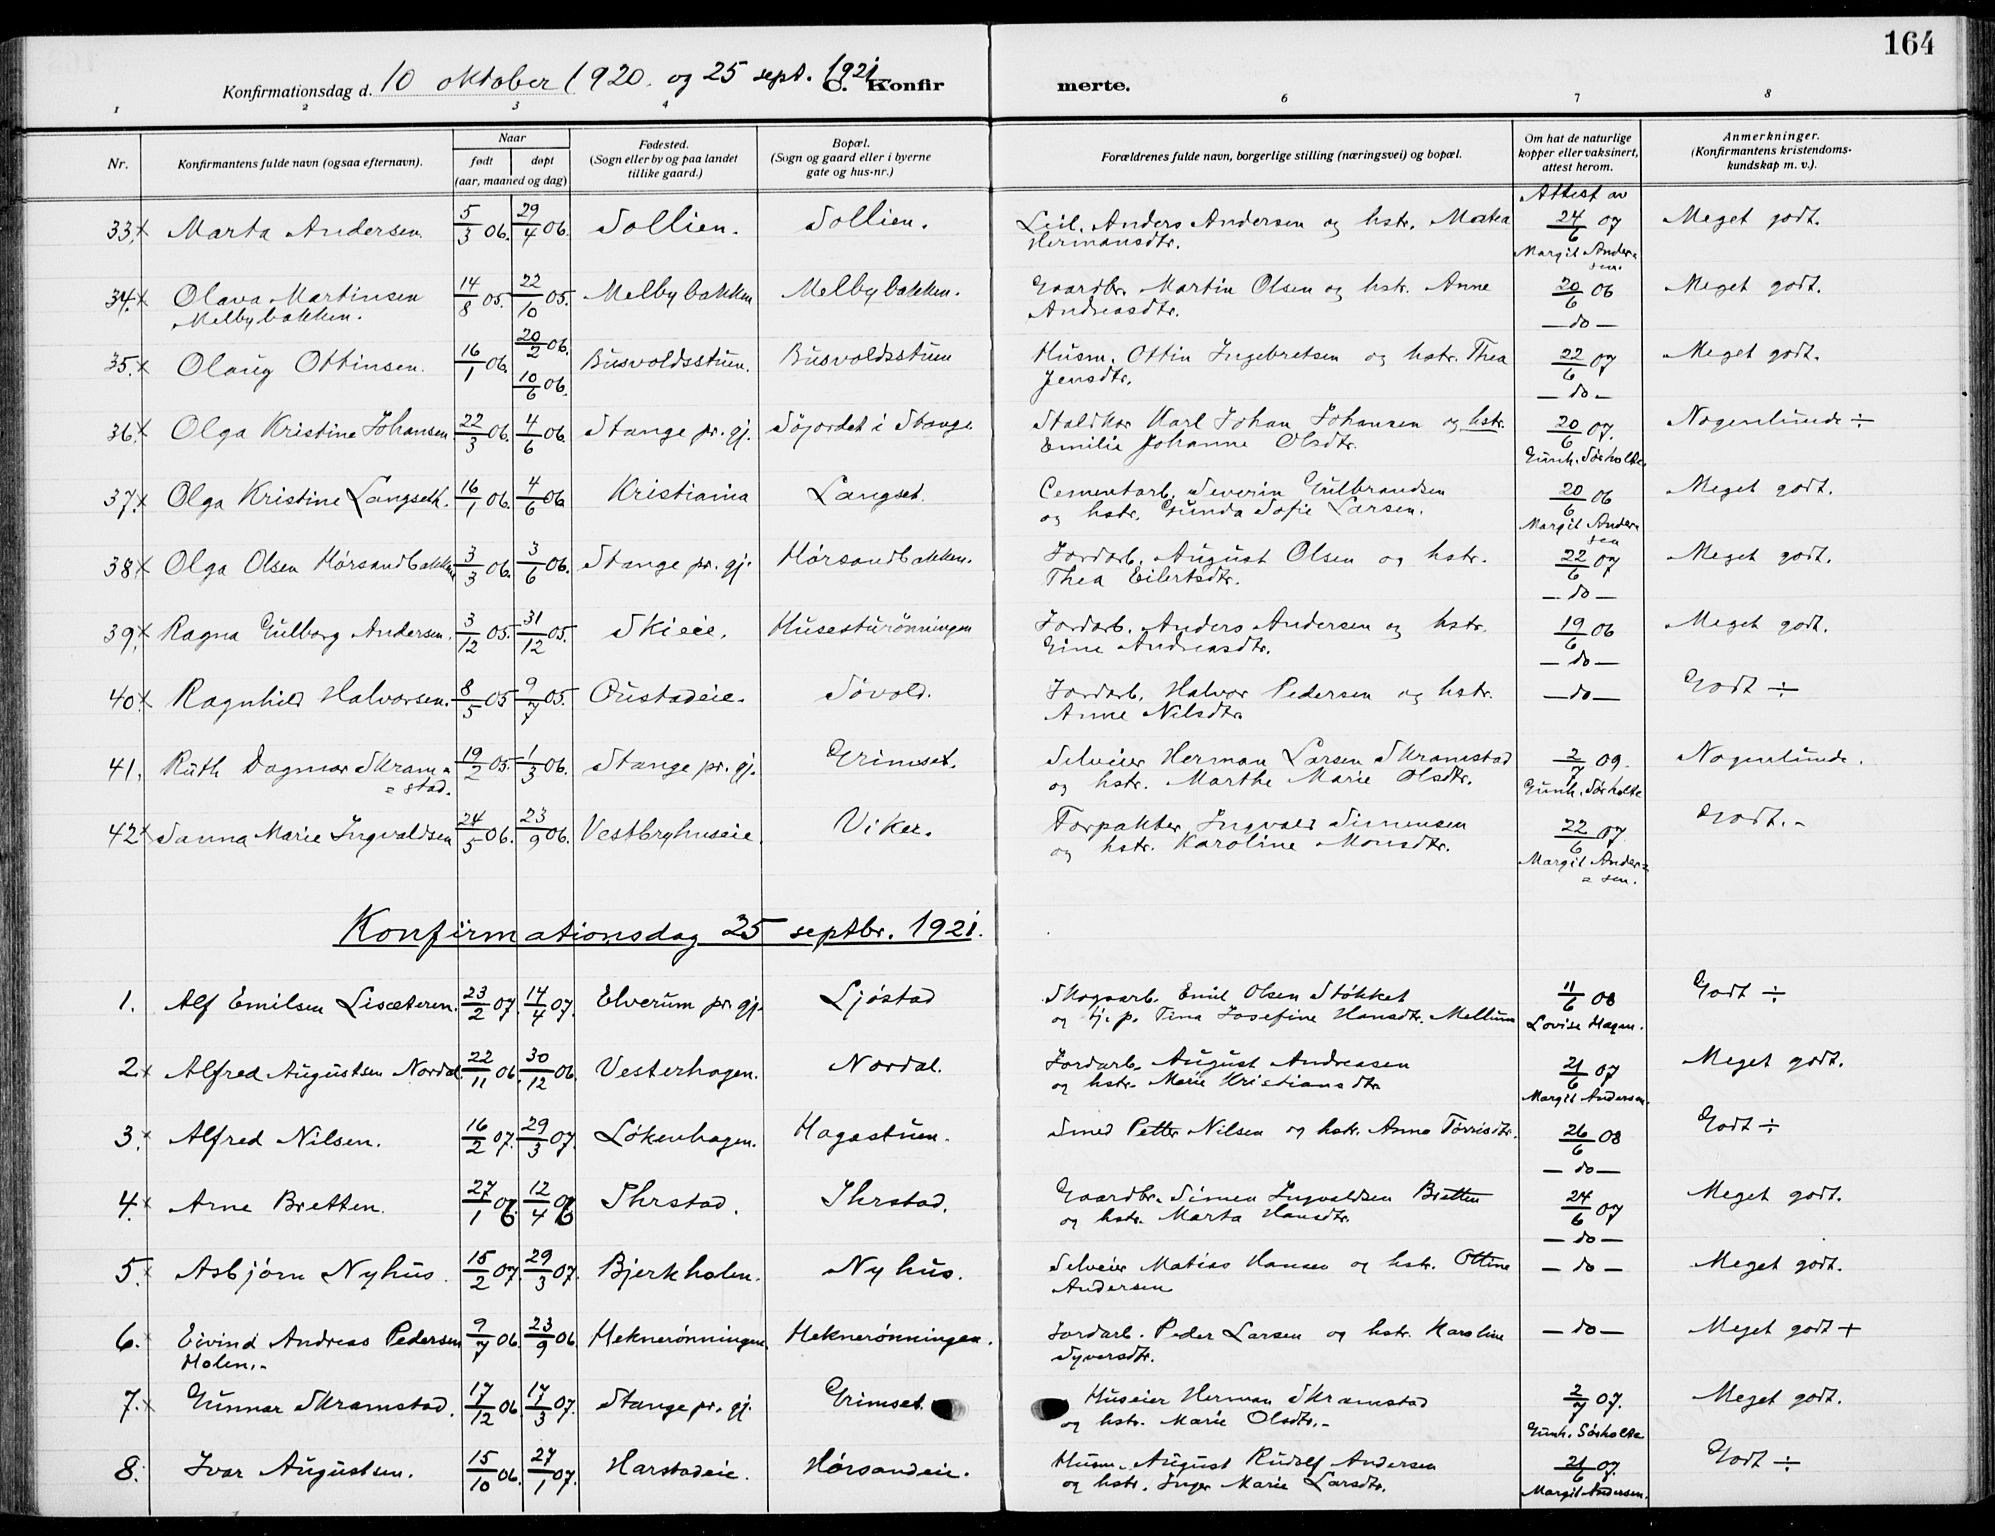 164
Konfirmationsdag d. 10 oktober 1920. og 25 sept. 1921 C. Konfirmerte.
1 2 3 4 6 7 8
Nr. Konfirmantens fulde navn (ogsaa efternavn). Naar født døpt (aar, maaned og dag) Fødested. (Sogn eller by og paa landet tillike gaard.) Bopæl. (Sogn og gaard eller i byerne gate og hus-nr.) Forældrenes fulde navn, borgerlige stilling (næringsvei) og bopæl. Om hat de naturlige kopper eller vaksinert, attest herom. Anmerkninger. (Konfirmantens kristendomskundskap m. v.).
Attest av
33. x Marta Andersen. 5/3 06. 29/4 06. Sollien. Sollien. Leil. Anders Andersen og hstr. Martea Hermansdtr. 24/6 07 Margit Andersen. Meget godt.
34. x Olava Martinsen Melbybakken. 14/8 05. 22/10 05. Melbybakken Melbybakken. Gaardbr. Martin Olsen og hstr. Anne Andreasdtr. 20/6 06 — do — Meget godt.
35. x Olaug Ottinsen. 16/1 06. 20/2 06. 10/6 06. Busvoldsstuen. Busvoldsstuen Husm. Ottin Ingebretsen og hstr. Thea Jensdtr. 22/6 07 — do — Meget godt.
36. x Olga Kristine Johansen 22/3 06. 4/6 06. Stange pr. gj. Søjordet i Stange Staldkar Karl Johan Johansen og hstr. Emilie Johanne Olsdtr. 20/6 07. Gunh. Sørholte. Nogenlunde ÷
37. x Olga Kristine Langseth. 16/1 06. 4/6 06 Kristiania Langset. Cementarb. Severin Gulbrandsen og hstr. Gunda Sofie Larsen. 20/6 06 Margit Andersen Meget godt.
38 x Olga Olsen Hørsandbakken 3/3 06. 3/6 06. Stange pr. gj. Hørsandbakken. Jordarb. August Olsen og hstr. Thea Eilertsdtr. 22/6 07 — do — Meget godt.
39. x Ragna Gulborg Andersen. 3/12 05. 31/12 05. Skieie. Husesturønningen Jordarb. Anders Andersen og hstr. Gine Andreasdtr. 19/6 06 — do — Meget godt.
40. x Ragnhild Halvorsen. 8/5 05 9/7 05. Oustadeie. Søvold. Jordarb. Halvor Pedersen og hstr. Anne Nilsdtr. — do — Godt ÷
41. Ruth Dagmar Skramstad. 19/2 05. 1/3 06. Stange pr. gj. Grimset. Selveier Herman Larsen Skramstad og hstr. Marthe Marie Olsdtr. 2/7 09. Gunh. Sørholte Nogenlunde.
42 x Sanna Marie Ingvaldsen 24/5 06. 23/9 06. Vestbryhuseie. Viker. Forpakter Ingvald Simensen og hstr. Karoline Monsdtr. 22/6 07. Margit Andersen. Godt.
Konfirmationsdag 25 septbr. 1921.
1. Alf Emilsen Lisæteren. 23/2 07. 14/4 07. Elverum pr. gj. Ljøstad Skogsarb. Emil Olsen Støkket og tj. p. Tina Josefine Hansdtr. Mellum 11/6 08 Lovise Hagen. Godt ÷
2. x Alfred Augustsen Nordal. 22/11 06. 30/12 06. Vesterhagen. Nordal. Jordarb. August Andreasen og hstr. Marie Kristiansdtr 21/6 07 Margit Andersen. Meget godt.
3. x Alfred Nilsen. 16/2 07. 29/3 07. Løkenhagen. Hagastuen. Smed Petter Nilsen og hstr. Anna Tørrisdtr. 26/6 08 — do — Godt ÷
4. x Arne Bretten. 27/1 06. 12/4 06 Ihrstad. Ihrstad. Gaardbr. Simen Ingvaldsen Bretten og hstr. Marta Hansdtr. 24/6 07 — do — Meget godt.
5. x Asbjørn Nyhus. 15/2 07. 29/3 07. Bjerkholen. Nyhus. Selveier Matias Hansen og hstr. Ottine Andersen — do — Meget godt.
6. x Eivind Andreas Pedersen Holen. 9/7 06. 23/9 06. Heknerønningen. Heknerønningen. Jordarb. Peder Larsen og hstr. Karoline Syversdtr. — do — Meget godt +
7. x Gunnar Skramstad. 17/12 06. 17/3 07. Stange pr. gj. Grimset. Huseier Herman Skramstad og hstr. Marie Olsdtr. 2/7 07. Gunh. Sørholte Meget godt.
8. Ivar Augustsen. 15/10 06. 27/1 07. Harstadeie. Hørsandeie. Husm. August Rudolf Andersen og hstr. Inger Marie Larsdtr. 21/6 07. Margit Andersen. Godt ÷